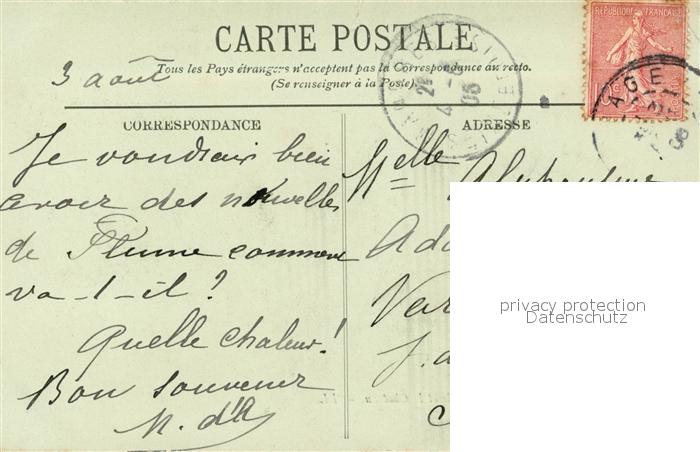 CARTE POSTALE
Tous les Pays étrangers n'acceptent pas la Correspondance au recto.
(Se renseigner à la Poste).
RÉPUBLIQUE FRANÇAISE
3 août
CORRESPONDANCE
Je voudrais bien
avoir des nouvelles
de Plume comment
va-t-il?
Quelle chaleur!
Bon souvenir
M. d'A
ADRESSE
Melle
Ado
Var
privacy protection
Datenschutz